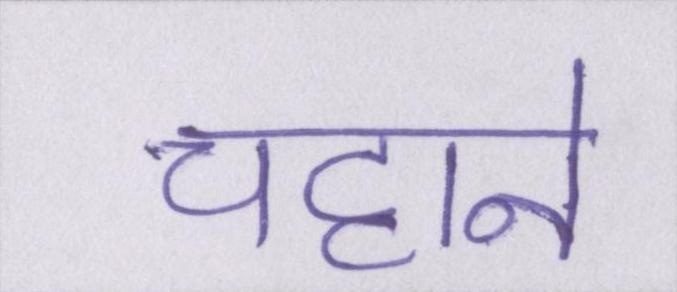 चट्टाने